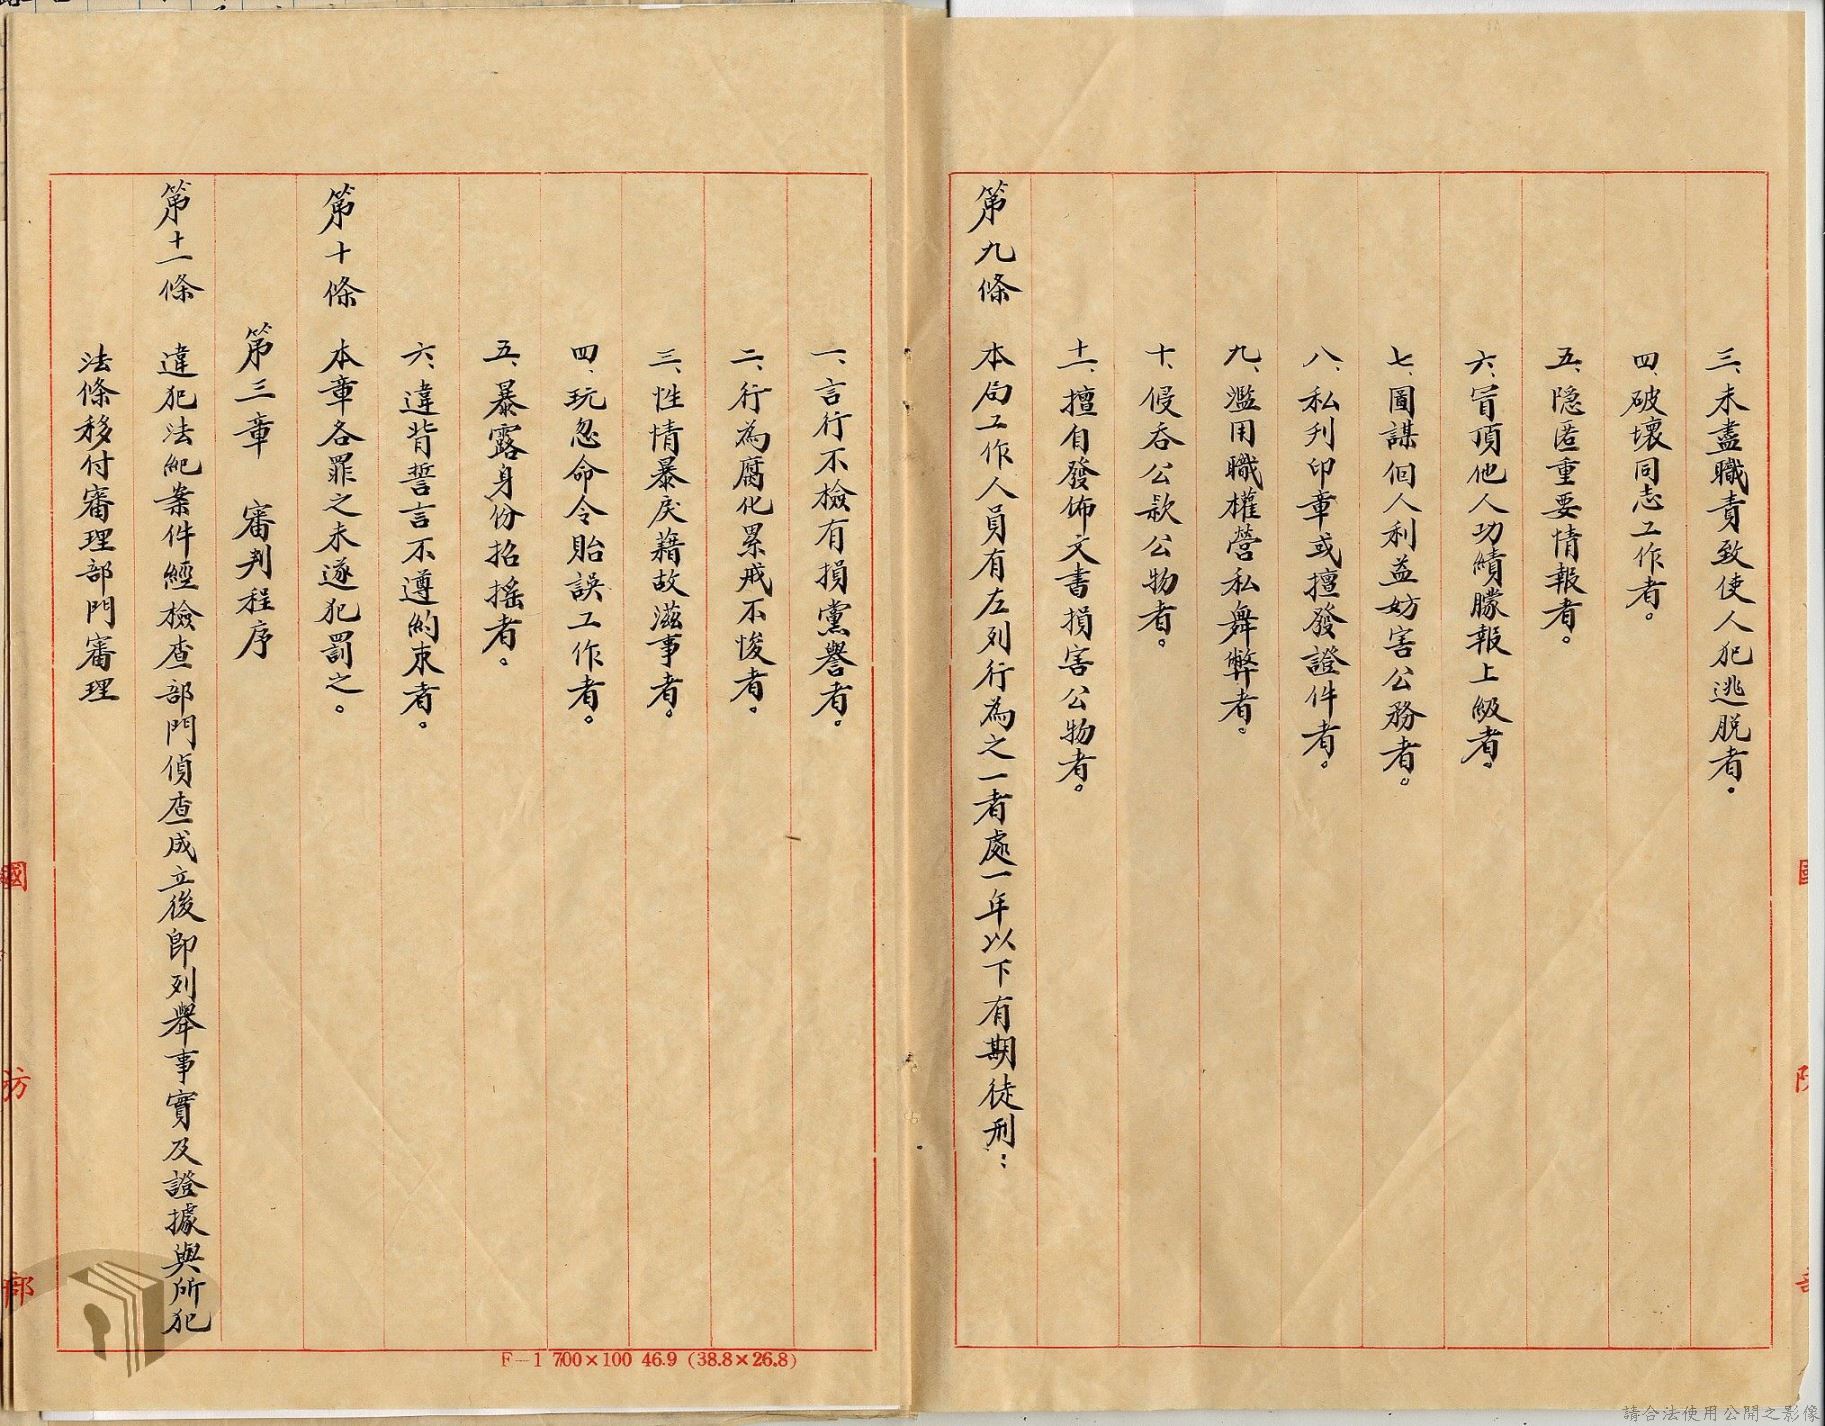 三、未盡職責致使人犯逃脱者。
四、破壞同志工作者。
五、隱匿重要情報者。
六、冒頂他人功績矇報上級者。
七、圖謀個人利益妨害公務者。
八、私刋印章或擅發證件者。
九、濫用職權營私舞弊者。
十、侵吞公款公物者。
十一、擅自發佈文書損害公物者。
第九條 本局工作人員有左列行為之一者處一年以下有期徒刑：
一、言行不檢有損黨譽者。
二、行為腐化累戒不悛者。
三、性情暴戾藉故滋事者。
四、玩忽命令貽誤工作者。
五、暴露身份招搖者。
六、違背誓言不遵約束者。
第十條 本章各罪之未遂犯罰之。
第三章 審判程序
第十一條 違犯法紀案件經檢查部門偵查成立後即列舉事實及證據與所犯
法條移付審理部門審理
國防部
F－1 700×100 46.9 (38.8×26.8)
請合法使用公開之影像